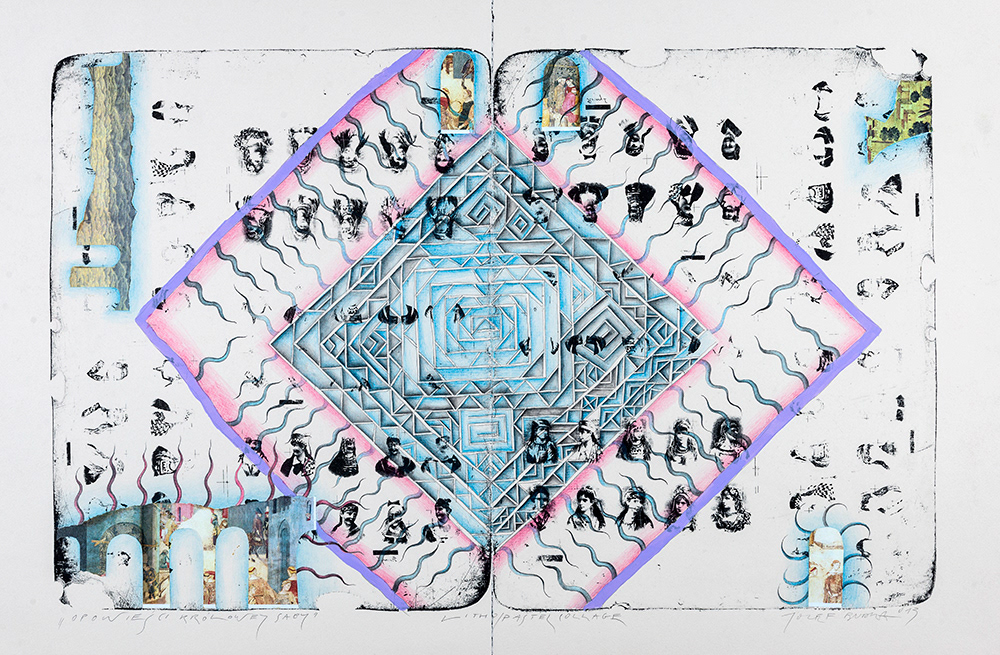 „OPOWIEŚCI KROLOWEJ SABY" LITH/PASTEL COLLAGE JOZEF